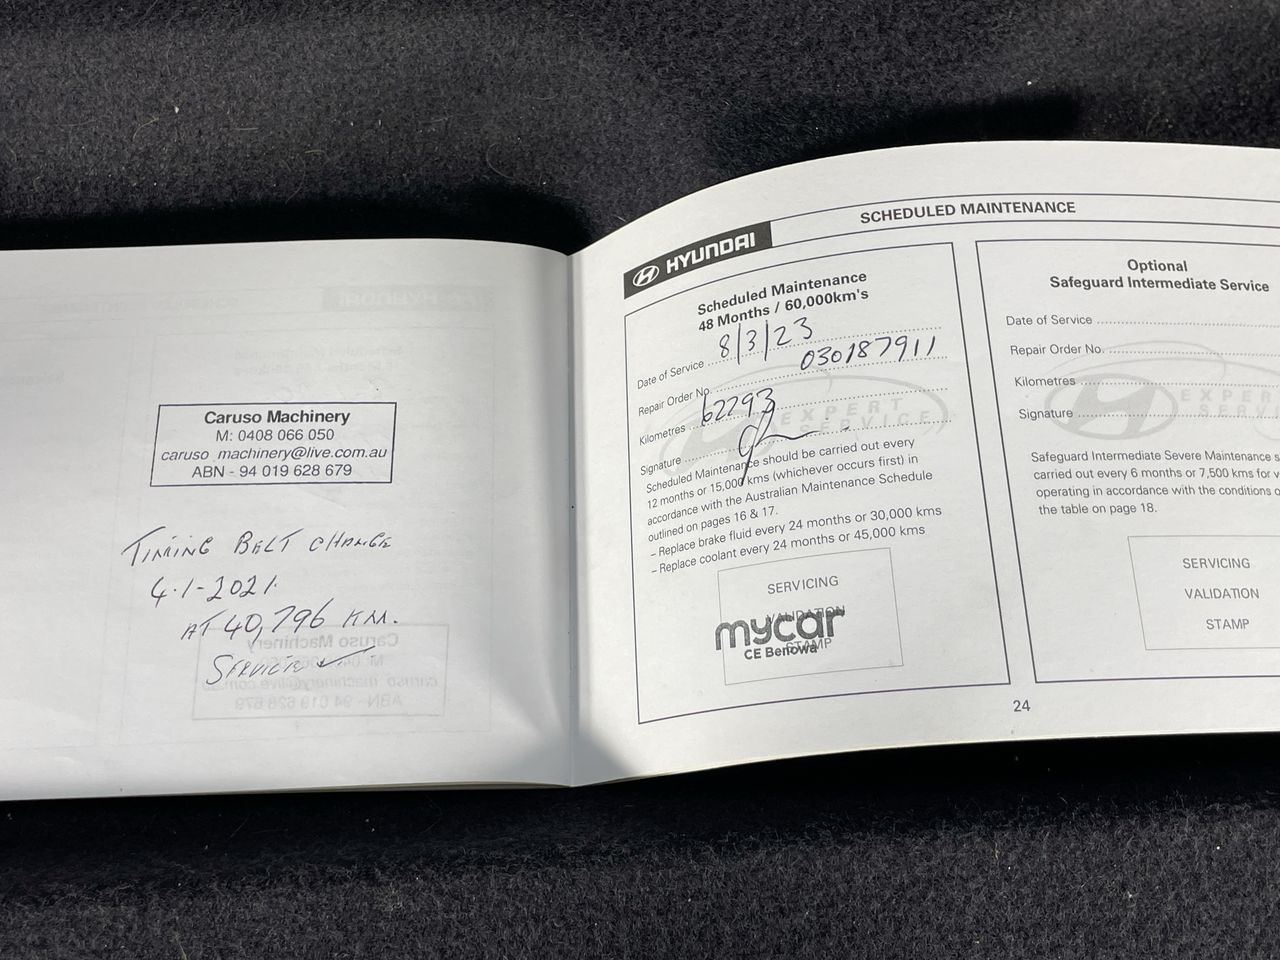 Caruso Machinery
M: 0408 066 050
caruso_machinery@live.com.au
ABN - 94 019 628 679
TIMING BELT CHANGE
4-1-2021.
AT 40,796 KM.
SERVICE ✓
HYUNDAI
SCHEDULED MAINTENANCE
Scheduled Maintenance
48 Months / 60,000km's
Date of Service 8/3/23
Repair Order No. 030187911
Kilometres 62293
Signature
EXPERT
SERVICE
Scheduled Maintenance should be carried out every
12 months or 15,000 kms (whichever occurs first) in
accordance with the Australian Maintenance Schedule
outlined on pages 16 & 17.
– Replace brake fluid every 24 months or 30,000 kms
– Replace coolant every 24 months or 45,000 kms
SERVICING
VALIDATION
STAMP
mycar
CE Benowa
Optional
Safeguard Intermediate Service
Date of Service
Repair Order No.
Kilometres
Signature
EXPER
SERVIC
Safeguard Intermediate Severe Maintenance s
carried out every 6 months or 7,500 kms for v
operating in accordance with the conditions o
the table on page 18.
SERVICING
VALIDATION
STAMP
24